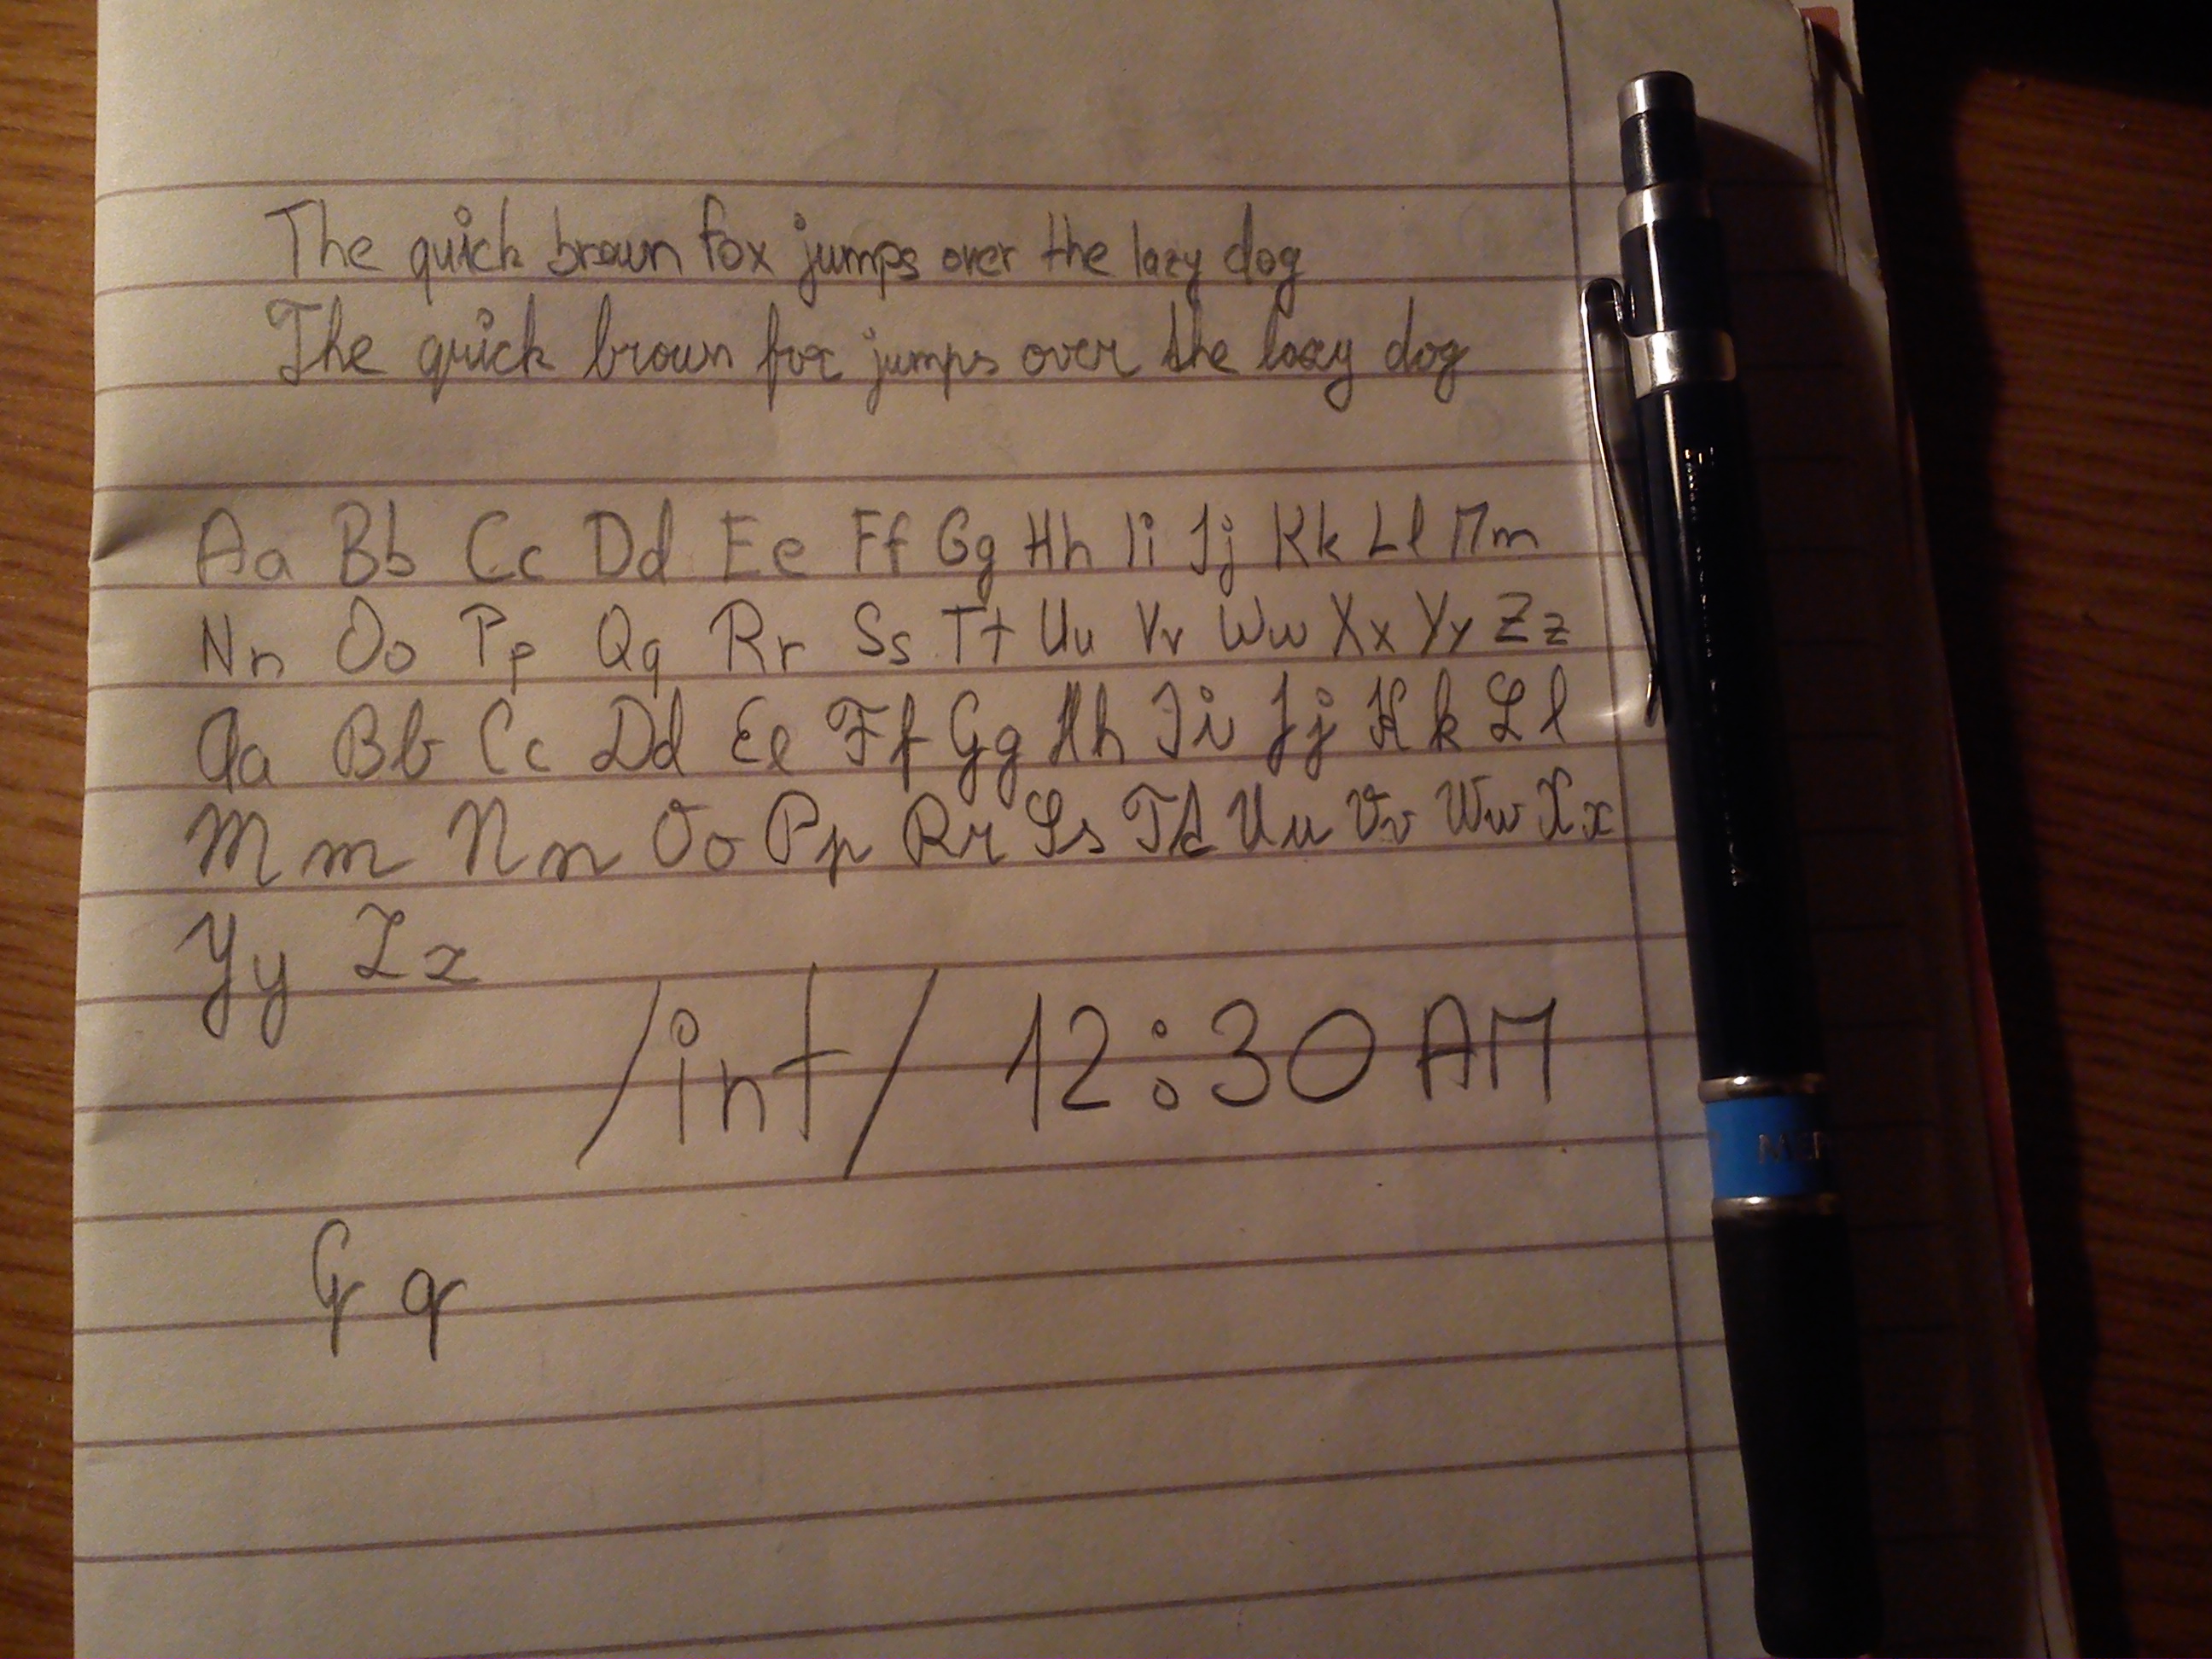 The quick brown fox jumps over the lazy dog
The quick brown fox jumps over the lazy dog
Aa Bb Cc Dd Ee Ff Gg Hh Ii Jj Kk Ll Mm
Nn Oo Pp Qq Rr Ss Tt Uu Vv Ww Xx Yy Zz
Aa Bb Cc Dd Ee Ff Gg Hh Ii Jj Kk Ll
Mm Nn Oo Pp Rr Ss Tt Uu Vv Ww Xx
Yy Zz
/int/ 12:30 AM
Q q